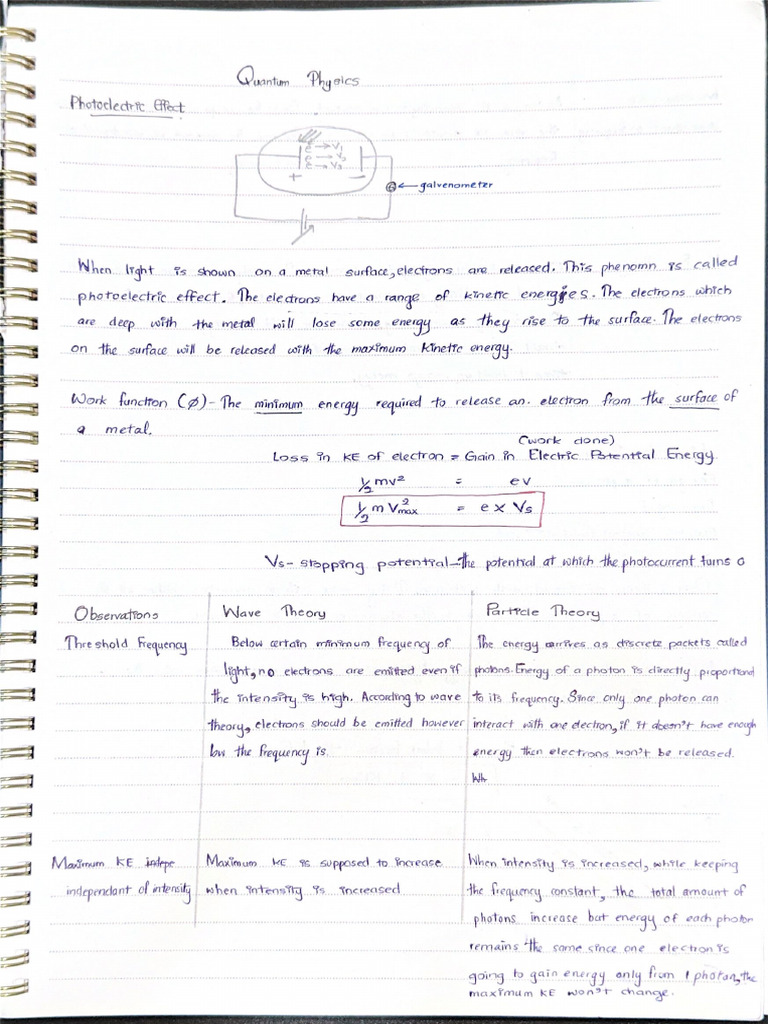 Quantum Physics
Photoelectric Effect
e → V1
e → V2
e → V3
+ −
← galvenometer
When light is shown on a metal surface, electrons are released. This phenomn is called
photoelectric effect. The electrons have a range of kinetic energies. The electrons which
are deep with the metal will lose some energy as they rise to the surface. The electrons
on the surface will be released with the maximum kinetic energy.
Work function (Ø) - The minimum energy required to release an electron from the surface of
a metal.
(work done)
Loss in KE of electron = Gain in Electric Potential Energy
½mv² = ev
½mVmax² = e × Vs
Vs - stopping potential - the potential at which the photocurrent turns o
Observations Wave Theory Particle Theory
Threshold Frequency
Below certain minimum frequency of
light, no electrons are emitted even if
the intensity is high. According to wave
theory, electrons should be emitted however
low the frequency is.
The energy arrives as discrete packets called
photons. Energy of a photon is directly proportional
to its frequency. Since only one photon can
interact with one electron, if it doesn't have enough
energy then electrons won't be released.
Wh
Maximum KE indepe
independant of intensity
Maximum KE is supposed to increase
when intensity is increased
When intensity is increased, while keeping
the frequency constant, the total amount of
photons increase but energy of each photon
remains the same since one electron is
going to gain energy only from 1 photon, the
maximum KE won't change.